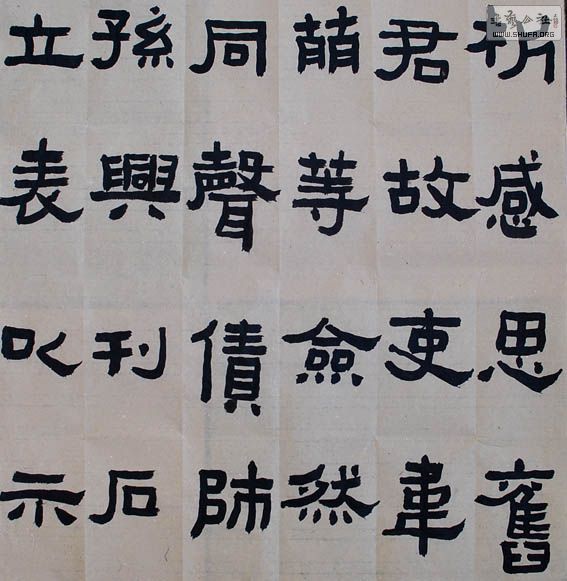 析感思舊
君故吏韋
萌等僉然
同聲賃師
孫興刊石
立表以示
WWW.SHUFA.ORG